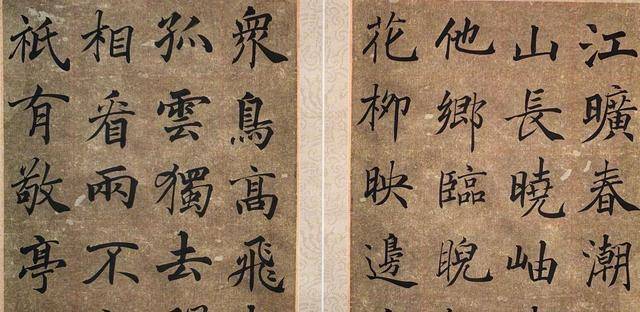 江曠春潮
山長曉岫
他鄉臨睨
花柳映邊
衆鳥高飛
孤雲獨去
相看兩不
祇有敬亭